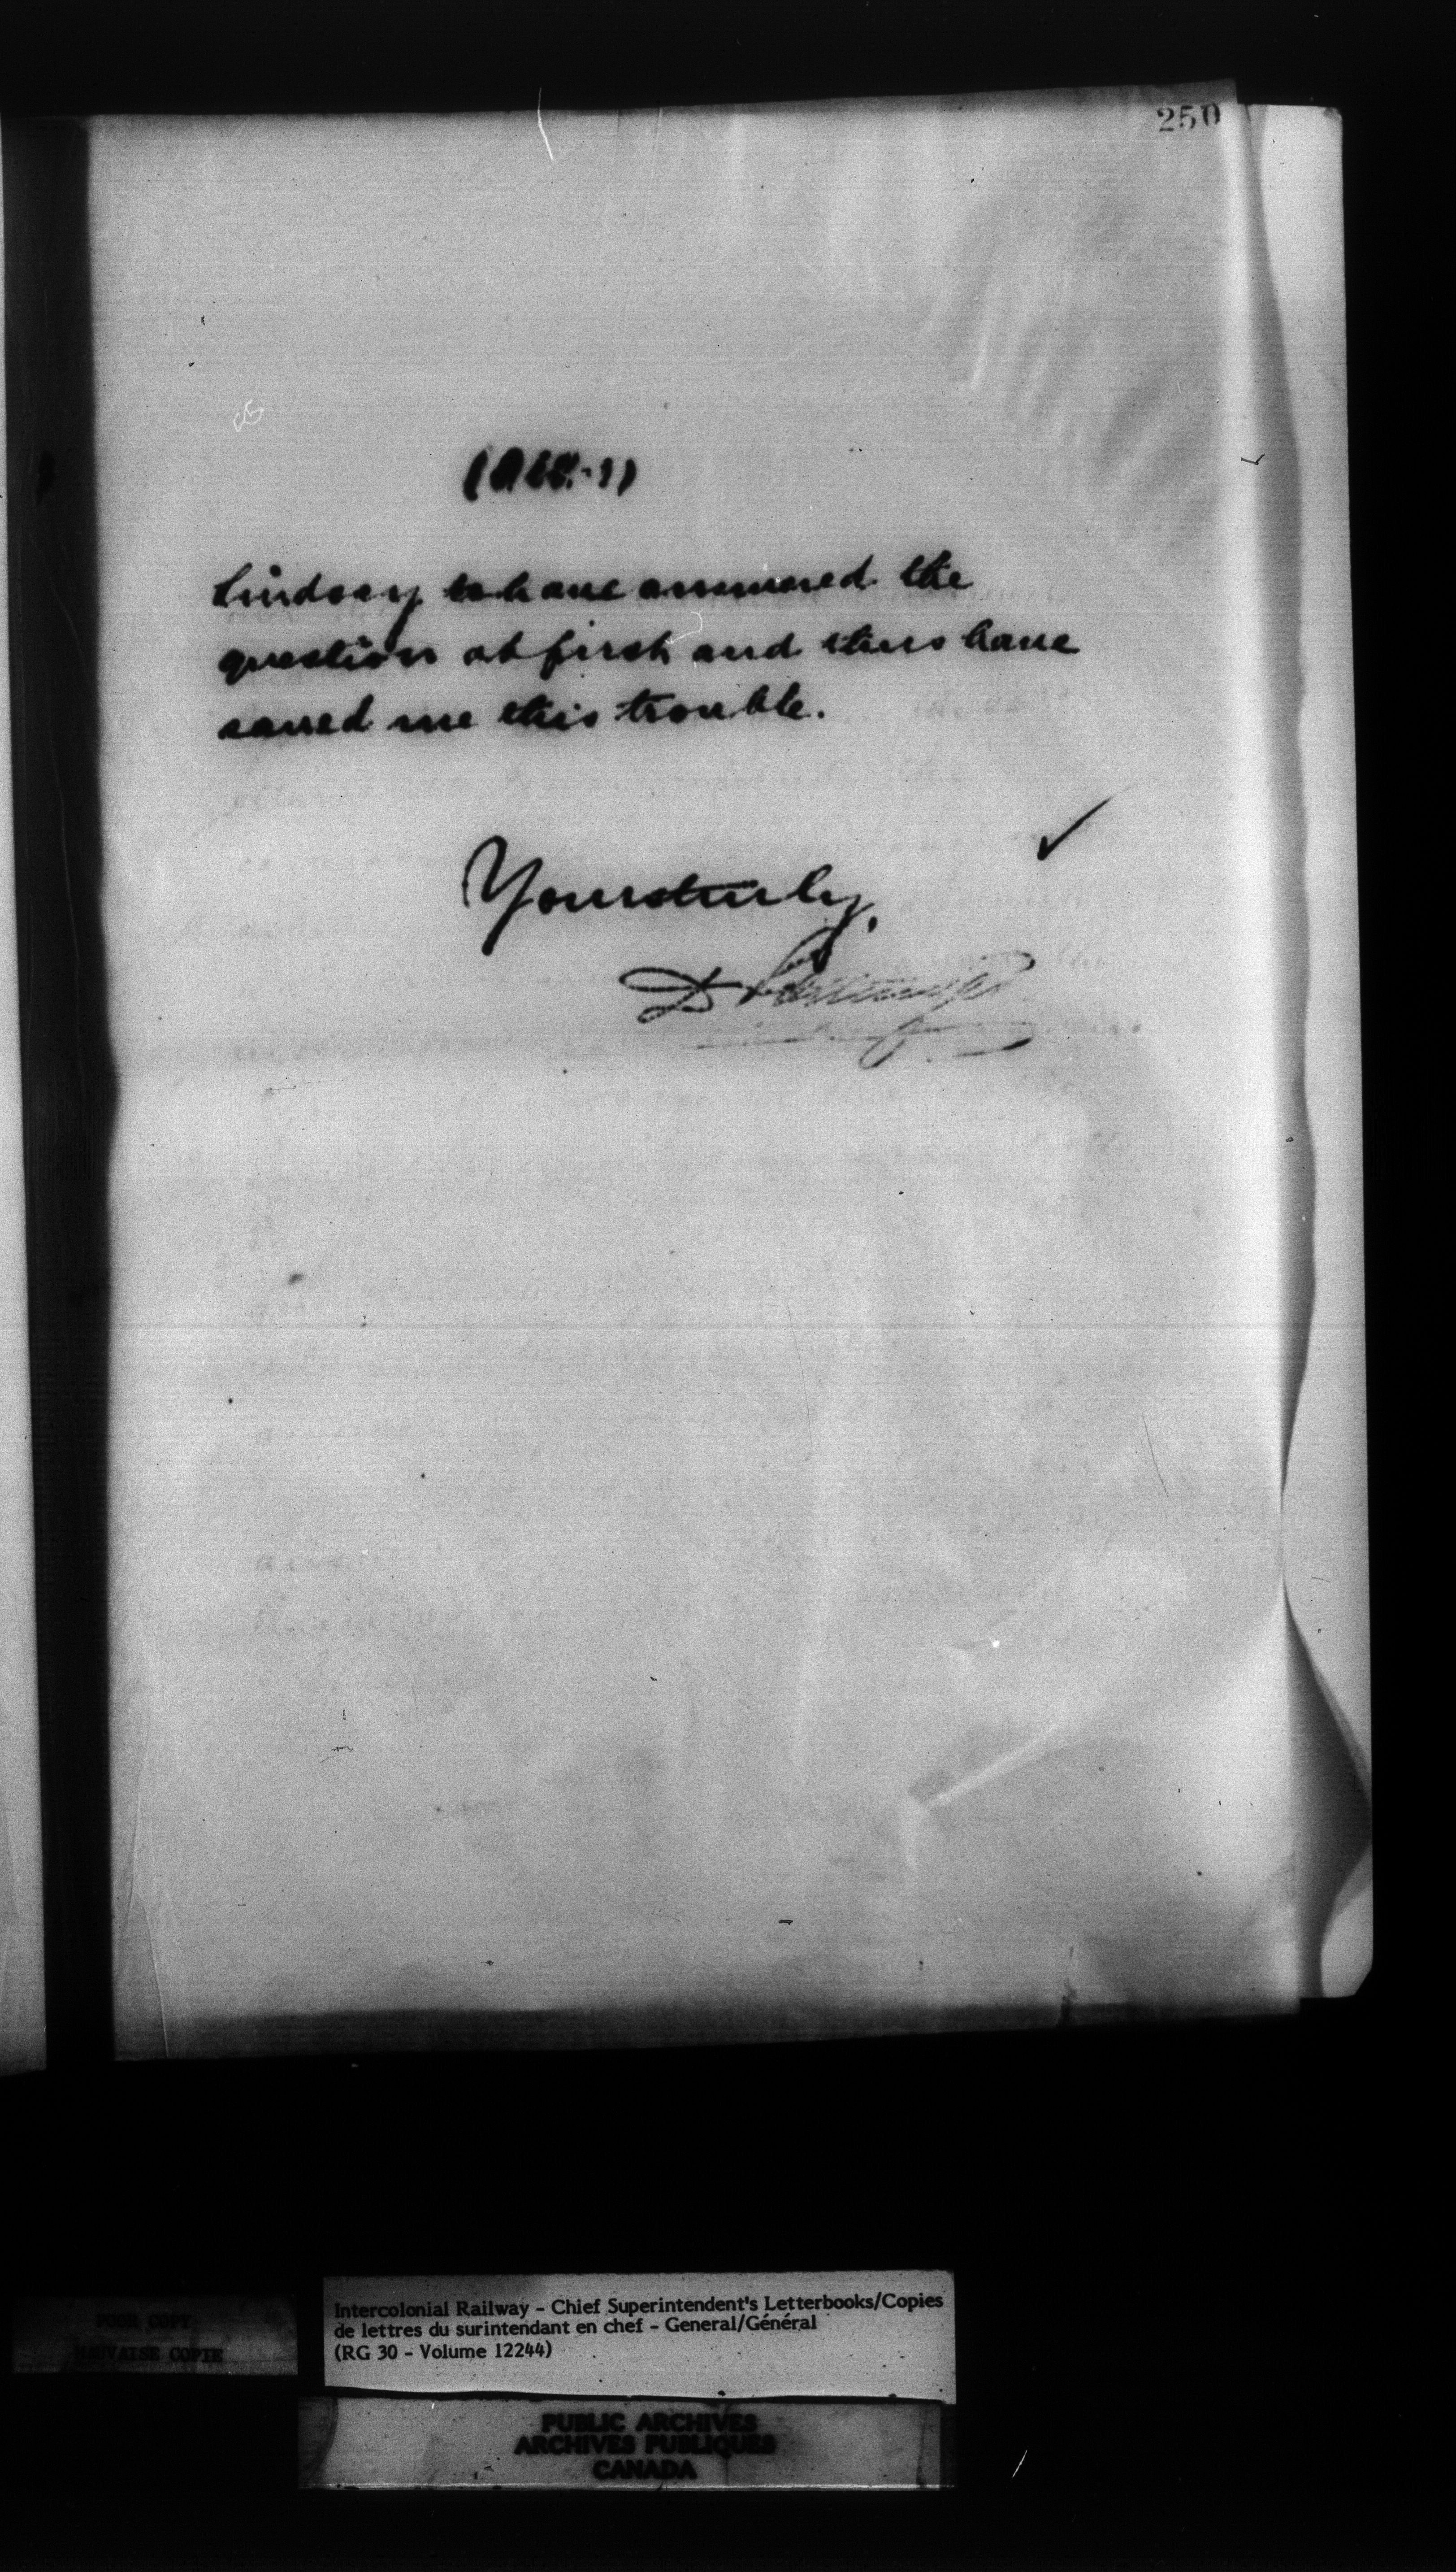 250
Lindsay to have answered the
question at first and thus have
saved me this trouble.
Yours truly,
D Pottinger
POOR COPY
MAUVAISE COPIE
Intercolonial Railway - Chief Superintendent's Letterbooks/Copies
de lettres du surintendant en chef - General/Général
(RG 30 - Volume 12244)
PUBLIC ARCHIVES
ARCHIVES PUBLIQUES
CANADA